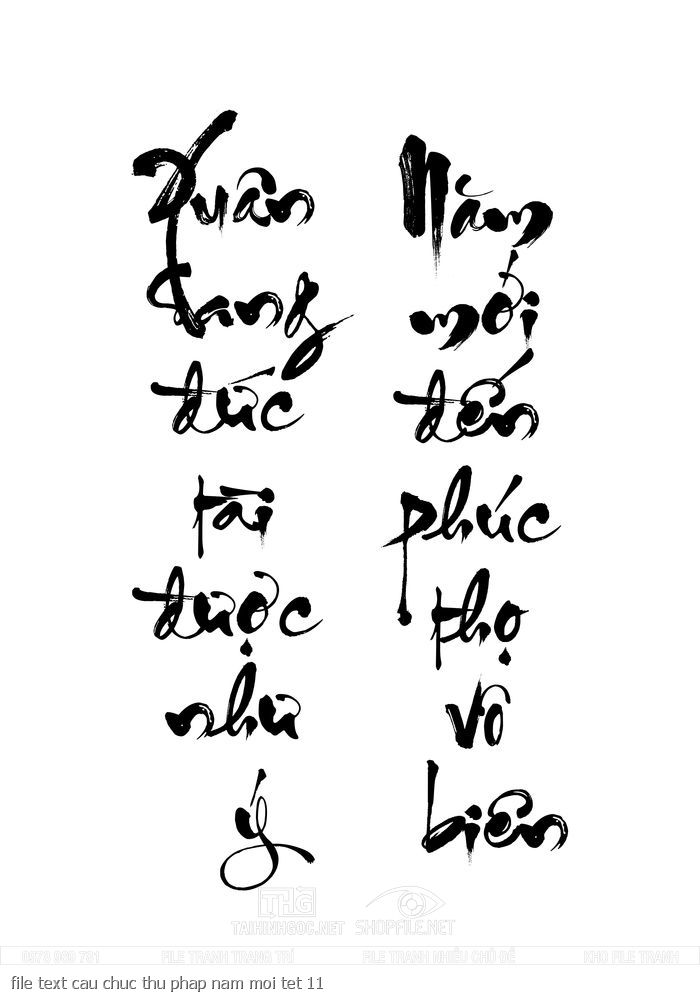 Xuân
đang
đức
tài
được
như
ý
Năm
mới
đến
phúc
thọ
vô
biên
THG
TAIHINHGOC.NET
SHOPFILE.NET
FILE TRANH TRANG TRÍ
FILE TRANH NHIỀU CHỦ ĐỀ
KHO FILE TRANH
file text cau chuc thu phap nam moi tet 11